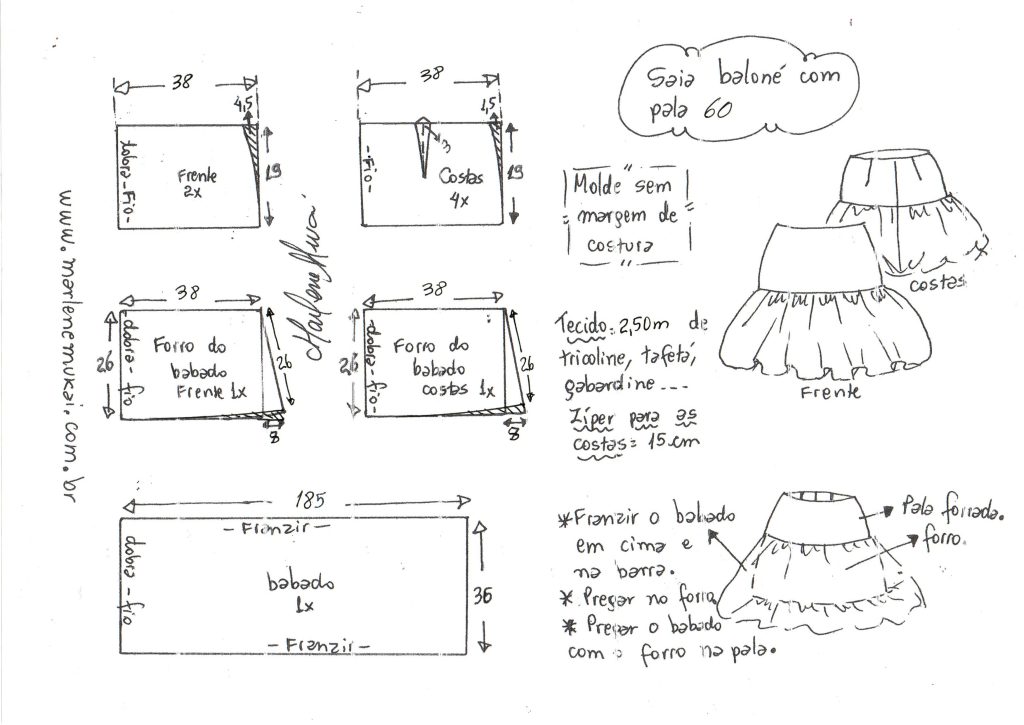 Saia baloné com
pala 60
38
4,5
19
dobra-Fio-
Frente
2x
38
1,5
3
19
-Fio-
Costas
4x
Marlene Mukai
www.marlenemukai.com.br
Molde sem
margem de
costura
costas
Frente
38
26
-dobra-fio
Forro do
babado
Frente 1x
26
8
38
26
-dobra-fio-
Forro do
babado
costas 1x
26
8
Tecido: 2,50m de
tricoline, tafetá,
gabardine...
Zíper para as
costas = 15cm
185
-Franzir-
dobra-fio
babado
1x
36
-Franzir-
*Franzir o babado
em cima e
na barra.
* Pregar no forro.
* Pregar o babado
com o forro na pala.
Pala forrada.
forro.